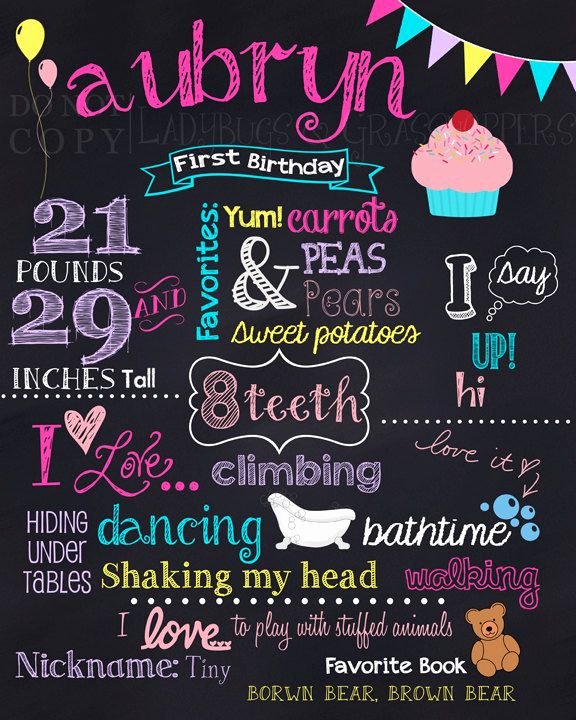 aubryn
DO NOT COPY | LADYBUGS & GRASSHOPPERS
First Birthday
21
POUNDS
AND
29
INCHES Tall
Favorites:
Yum! carrots
& PEAS
Pears
sweet potatoes
I say
UP!
hi
8 teeth
I Love...
climbing
love it
HIDING
UNDER
TABLES
dancing
bathtime
Shaking my head
walking
I love... to play with stuffed animals
Nickname: Tiny
Favorite Book
BORWN BEAR, BROWN BEAR